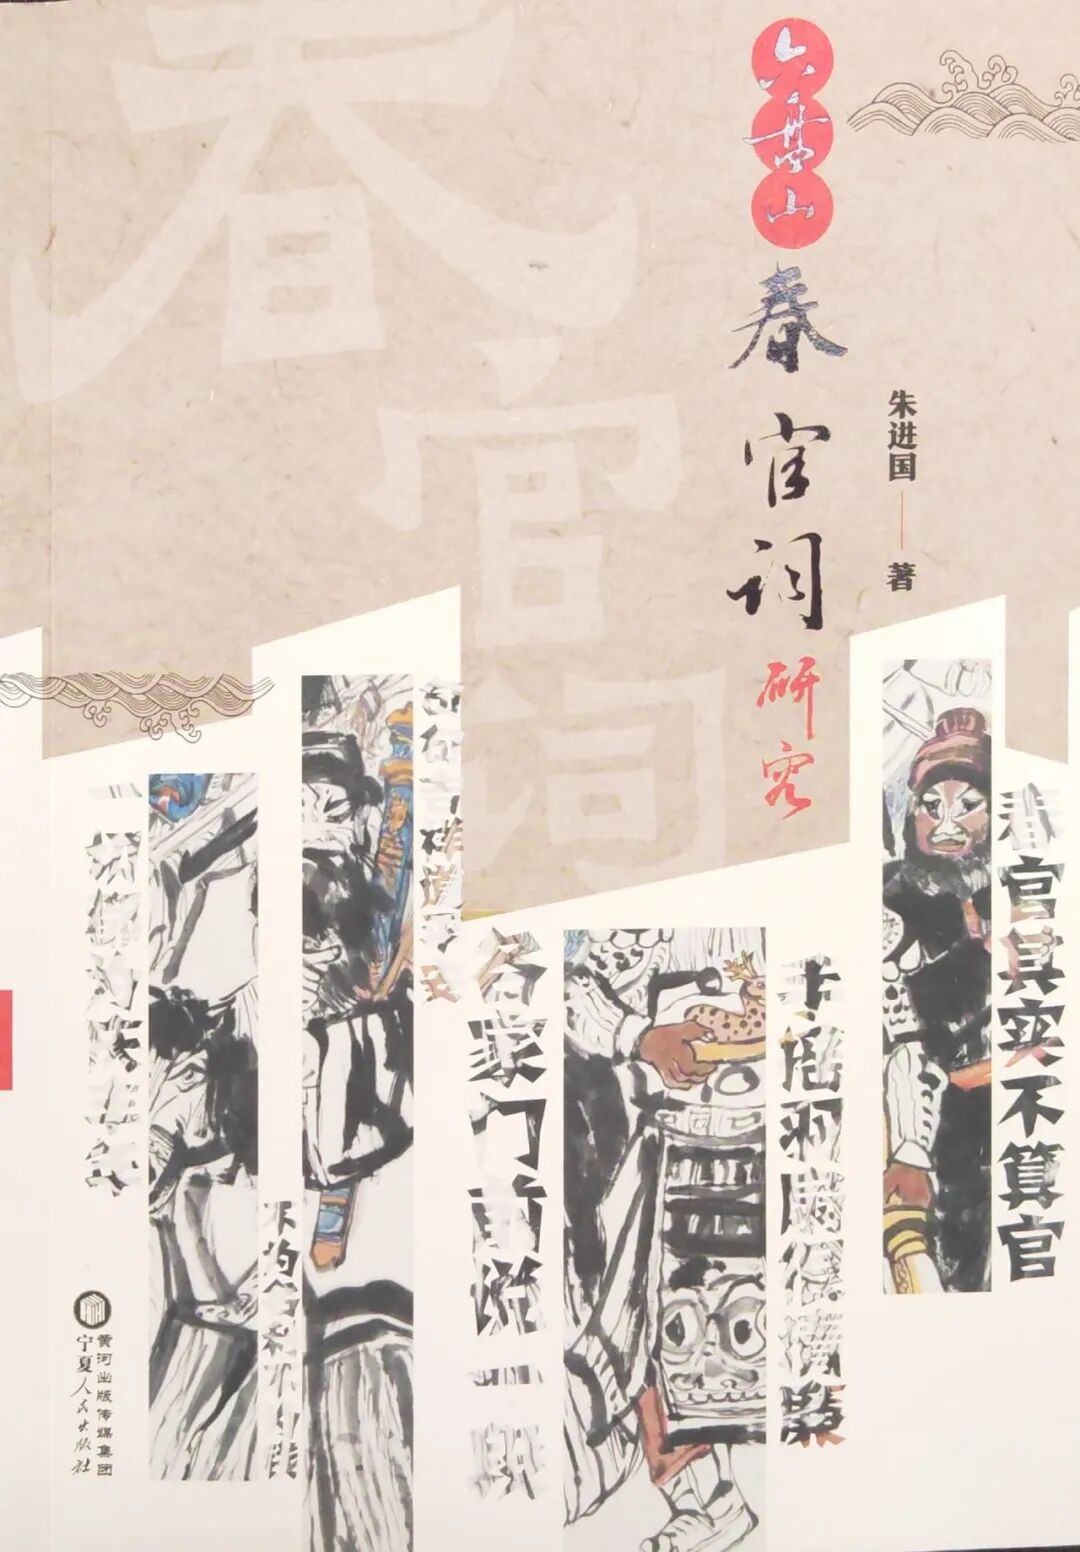 六盘山
春官词
研究
朱进国
著
春官词
春官其实不算官
手摇羽扇
各家门前说一段
黄河出版传媒集团
宁夏人民出版社